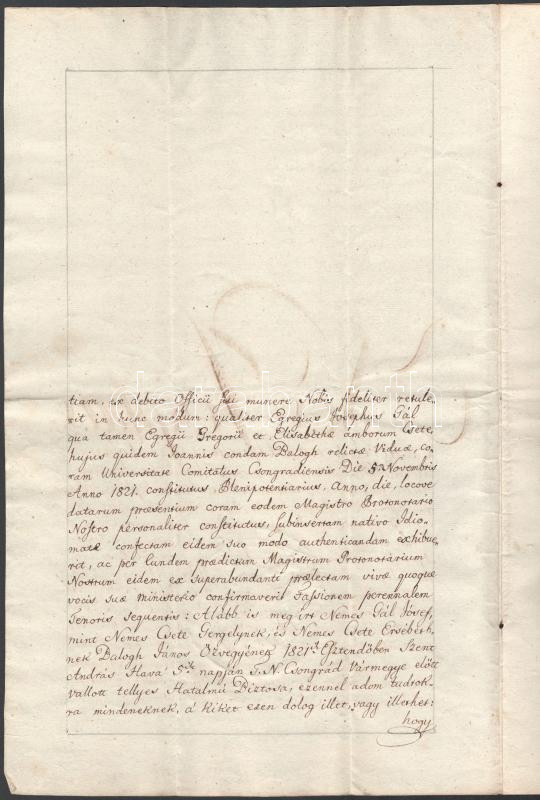 tiam, ex debito Officii sui munere Nobis fideliter retule-
rit in hunc modum: qualiter Egregius Josephus Gál
qua tamen Egregii Gregorii et Elisabethæ amborum Csete
hujus quidem Joannis condam Balogh relictæ Viduæ, co-
ram Universitate Comitatus Csongradiensis Die 5a Novembris
Anno 1821. constitutus Plenipotentiarius, Anno, die, locove
datarum præsentium coram eodem Magistro Protonotario
Nostro personaliter constitutus, subinsertam nativo Idio-
mate confectam eidem suo modo authenticandam exhibue-
rit, ac per Eundem prædictum Magistrum Protonotarium
Nostrum eidem ex superabundanti prælectam vivæ quoque
vocis suæ ministerio confirmaverit Fassionem perennalem
Tenoris sequentis: Alább is meg irt Nemes Gál Josef,
mint Nemes Csete Gergelynek, és Nemes Csete Ersébeth-
nek Balogh János Özvegyének 1821ik Esztendőben Szent
András Hava 5ik napján T. N. Csongrád Vármegye előtt
vallott tellyes Hatalmú Biztosa, ezennel adom tudtok-
ra mindeneknek, a' kiket ezen dolog illet, vagy illethet:
hogy